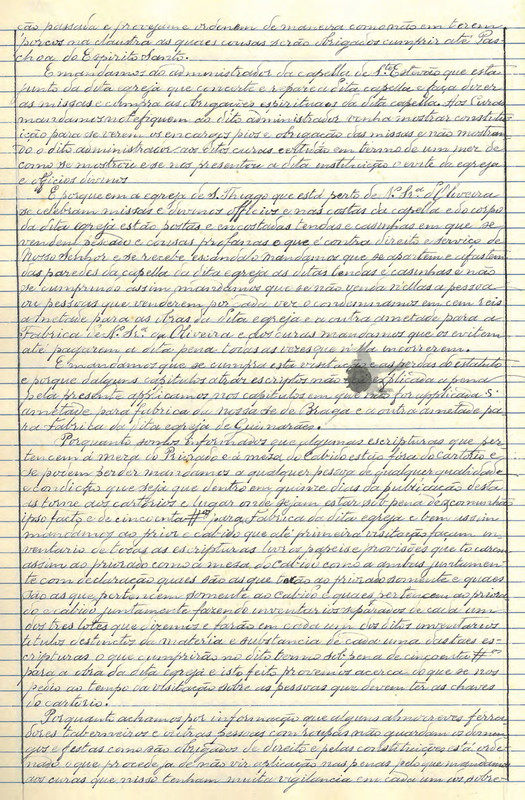 ção passada e provejam e ordenem de maneira como não em terem
porcos na claustra as quaes cousas serão obrigados cumprir até Pas-
choa do Espirito Santo.
E mandamos ao administrador da capella de Stº Estevão que está
junto da dita egreja que concerte e repare a dita capella e faça dizer
as missas e cumpra as obrigações espirituaes da dita capella. Aos curas
mandamos notefiquem ao dito administrador venha mostrar a constitui-
ição para se verem os encargos pios e obrigação das missas e não mostran-
do o dito administrador aos ditos curas certidão em termo de um mez de
como se mostrou e se nos presentou a dita instituição o evite da egreja
e officios divinos
E porque em a egreja de S. Thiago que está perto de N.ª Sr.ª d'Oliveira
se celebram missas e divinos officios e nas costas da capella e do corpo
da dita egreja estão postas e encostadas tendas e casinhas em que se
vendem pescado e cousas profanas o que é contra direito e serviço de
Nosso Senhor e se recebe escandalo mandamos que se apartem e afastem
das paredes da capella da dita egreja as ditas tendas e casinhas e não
se cumprindo assim mandamos que se não venda n'ellas a pessoa
ou pessoas que venderem por cada vez o condemnamos em cem reis
ametade para as obras da dita egreja e a outra ametade para a
Fabrica de N.ª Sr.ª da Oliveira e aos curas mandamos que os evitem
até pagarem a dita pena todas as vezes que n'ella incorrerem.
E mandamos que se cumpra esta as perdas do estatuto
e porque d'alguns capitulos atraz escriptos não applicada a pena
pela presente applicamos nos capitulos em que não for applicada a
ametade para fabrica da nossa Sé de Braga e a outra ametade pa-
ra fabrica da dita egreja de Guimarães.
Porquanto somos informados que algumas escripturas que per-
tencem á meza do Priorado e á meza do Cabido estão fóra do cartorio e
se podem perder mandamos a qualquer pessoa de qualquer qualidade
e condição que seja que dentro em quinze dias da publicação desta
as torne aos cartorios e lugar onde sejam estar sob pena d'excomunhão
ipso facto e de cincoenta para Fabrica da dita egreja e bem assim
mandamos ao prior e cabido que até primeira visitação façam in-
ventario de todas as escripturas livros papeis e provisões que tocarem
assim ao priorado como á meza do cabido como a ambas juntamen-
te com declaração quaes são as que tocão ao priorado somente e quaes
são as que pertencem somente ao cabido e quaes pertencem ao priora-
do e cabido juntamente fazendo inventarios separados de cada um
dos tres lotes que dizemos e farão em cada um dos ditos inventarios
titulos destinctos da materia e substancia de cada uma das taes es-
cripturas o que cumprirão no dito termo sob pena de cincoenta
para a obra da dita egreja e isto feito provemos acerca do que se nos
pedio ao tempo da visitação sobre as pessoas que devem ter as chaves
do cartorio.
Porquanto achamos por informação que alguns almocreves ferra-
dores taberneiros e outras pessoas não guardam os domin-
gos e festas como são obrigados de direito e pelas constituições está orde-
nado o que procede já de não vir applicação nas penas pelo que mandamos
aos curas que nisso tenham muita vigilancia em cada um os sobre-